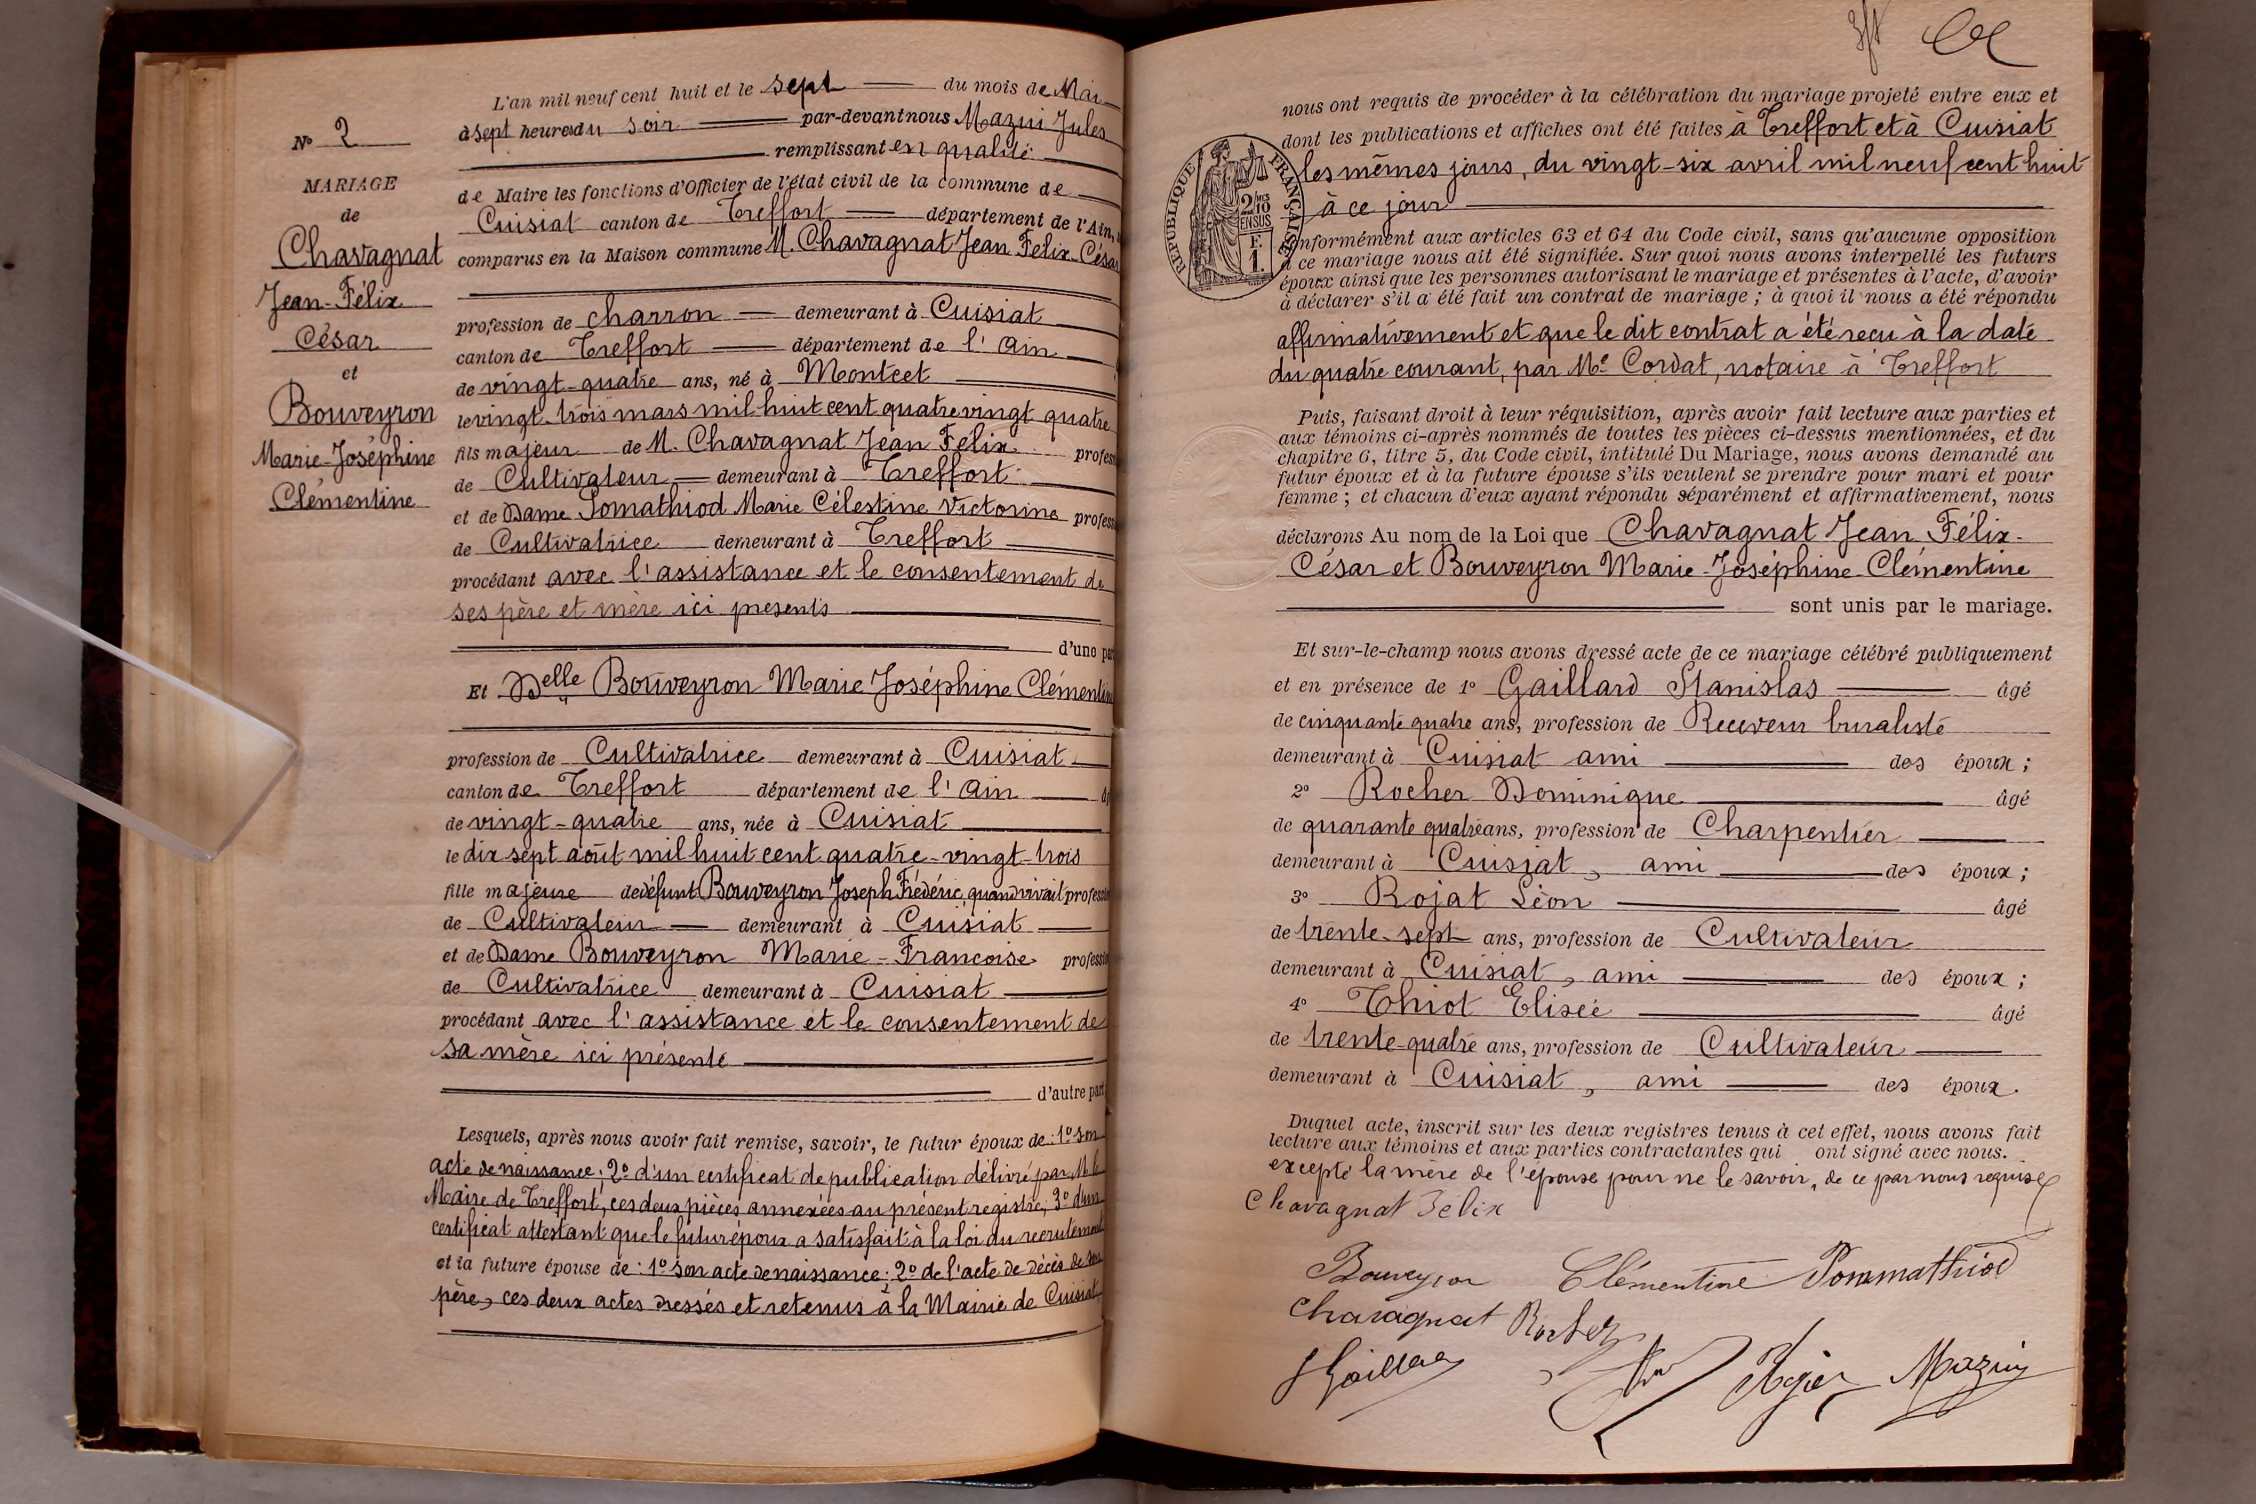 L'an mil neuf cent huit et le sept du mois de Mai
à sept heures du soir par-devant nous Mazui Jules
remplissant en qualité
de Maire les fonctions d'Officier de l'état civil de la commune de
Cuisiat canton de Treffort département de l'Ain,
comparus en la Maison commune M. Chavagnat Jean Félix César
profession de charron demeurant à Cuisiat
canton de Treffort département de l'Ain
de vingt-quatre ans, né à Montcet
le vingt-trois mars mil huit cent quatre vingt quatre
fils majeur de M. Chavagnat Jean Félix profess
de Cultivateur demeurant à Treffort
et de Dame Pomathiod Marie Célestine Victorine profess
de Cultivatrice demeurant à Treffort
procédant avec l'assistance et le consentement de
ses père et mère ici présents
d'une par
Et Delle Bouveyron Marie Joséphine Clémentine
profession de Cultivatrice demeurant à Cuisiat
canton de Treffort département de l'Ain
de vingt-quatre ans, née à Cuisiat
le dix sept août mil huit cent quatre-vingt-trois
fille majeure de défunt Bouveyron Joseph Frédéric, quand vivait professio
de Cultivateur demeurant à Cuisiat
et de Dame Bouveyron Marie-Françoise professio
de Cultivatrice demeurant à Cuisiat
procédant avec l'assistance et le consentement de
sa mère ici présente
d'autre part
Lesquels, après nous avoir fait remise, savoir, le futur époux de : 1º son
acte de naissance ; 2º d'un certificat de publication délivré par M. le
Maire de Treffort, ces deux pièces annexées au présent registre ; 3º d'un
certificat attestant que le futur époux a satisfait à la loi du recrutement
et la future épouse de : 1º son acte de naissance ; 2º de l'acte de décès de son
père, ces deux actes dressés et retenus à la Mairie de Cuisiat
Nº 2
MARIAGE
de
Chavagnat
Jean-Félix
César
et
Bouveyron
Marie-Joséphine
Clémentine
nous ont requis de procéder à la célébration du mariage projeté entre eux et
dont les publications et affiches ont été faites à Treffort et à Cuisiat
les mêmes jours, du vingt-six avril mil neuf cent huit
à ce jour
RÉPUBLIQUE FRANÇAISE
2/10 MES
EN SUS
F.
1.
onformément aux articles 63 et 64 du Code civil, sans qu'aucune opposition
à ce mariage nous ait été signifiée. Sur quoi nous avons interpellé les futurs
époux ainsi que les personnes autorisant le mariage et présentes à l'acte, d'avoir
à déclarer s'il a été fait un contrat de mariage ; à quoi il nous a été répondu
affirmativement et que le dit contrat a été reçu à la date
du quatre courant, par Me Cordat, notaire à Treffort
Puis, faisant droit à leur réquisition, après avoir fait lecture aux parties et
aux témoins ci-après nommés de toutes les pièces ci-dessus mentionnées, et du
chapitre 6, titre 5, du Code civil, intitulé Du Mariage, nous avons demandé au
futur époux et à la future épouse s'ils veulent se prendre pour mari et pour
femme ; et chacun d'eux ayant répondu séparément et affirmativement, nous
déclarons Au nom de la Loi que Chavagnat Jean Félix
César et Bouveyron Marie-Joséphine Clémentine
sont unis par le mariage.
Et sur-le-champ nous avons dressé acte de ce mariage célébré publiquement
et en présence de 1º Gaillard Stanislas âgé
de cinquante quatre ans, profession de Receveur buraliste
demeurant à Cuisiat ami des époux ;
2º Rocher Dominique âgé
de quarante quatre ans, profession de Charpentier
demeurant à Cuisiat, ami des époux ;
3º Rojat Léon âgé
de trente-sept ans, profession de Cultivateur
demeurant à Cuisiat, ami des époux ;
4º Thiot Elisée âgé
de trente-quatre ans, profession de Cultivateur
demeurant à Cuisiat, ami des époux.
Duquel acte, inscrit sur les deux registres tenus à cet effet, nous avons fait
lecture aux témoins et aux parties contractantes qui ont signé avec nous.
excepté la mère de l'épouse pour ne le savoir, de ce par nous requise
Chavagnat Félix
Bouveyron Clémentine Pommathiod
Chavagnat Rocher
Gaillard Mazuy